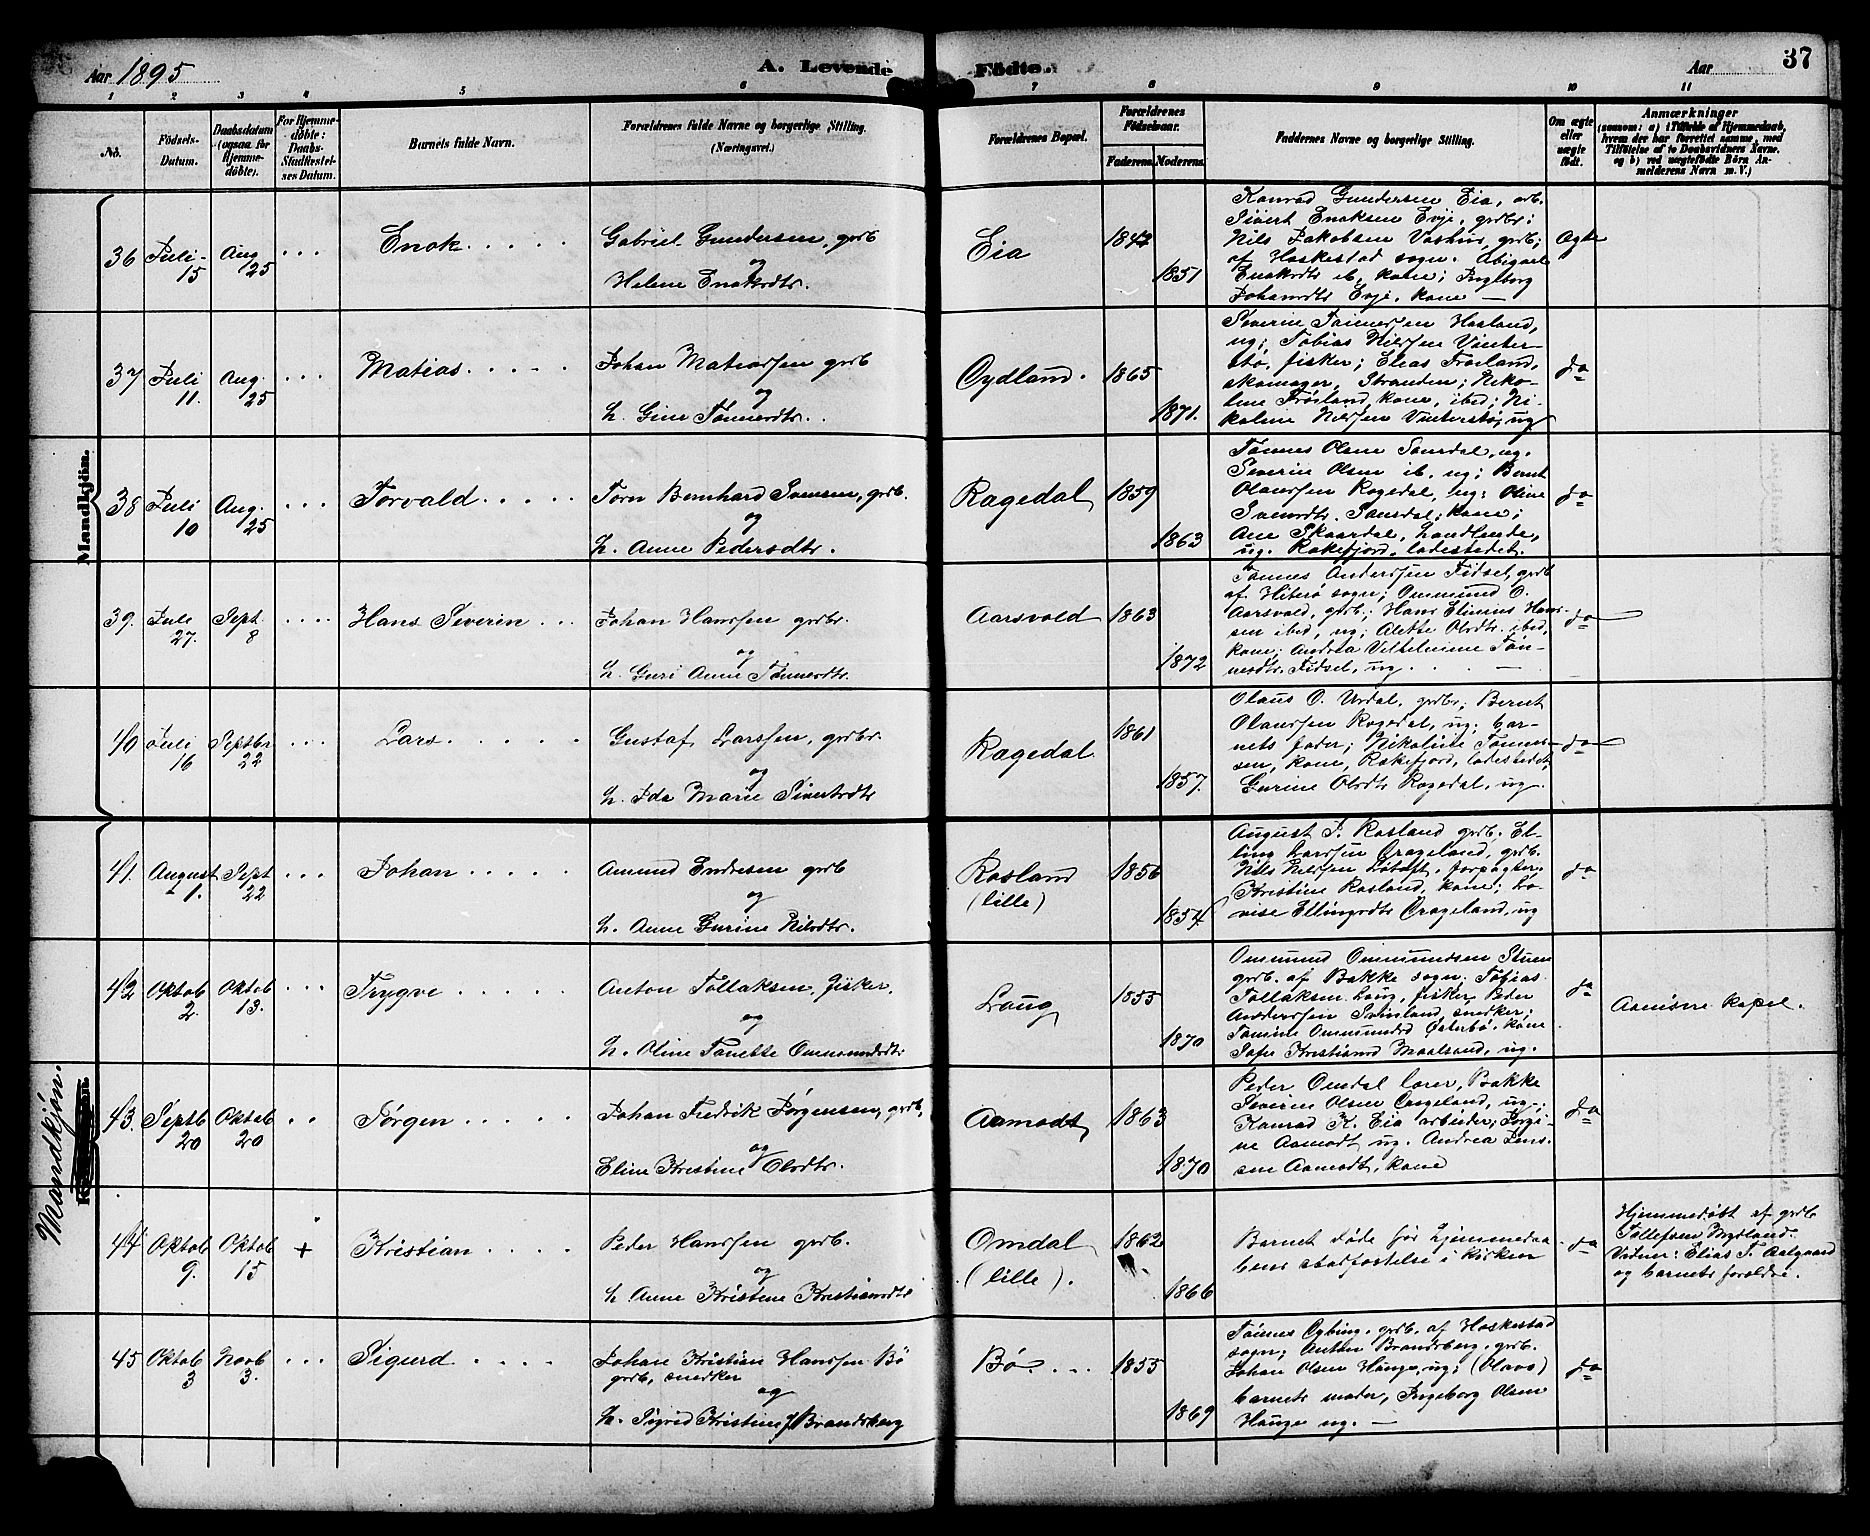 Aar 1895
A. Levende Födte.
Aar
37
1 2 3 4 5 6 7 8 9 10 11
No.
Födsels-Datum.
Daabsdatum (ogsaa for Hjemmedöbte).
For Hjemmedöbte: Daabs-Stadfæstelses Datum.
Barnets fulde Navn.
Forældrenes fulde Navne og borgerlige Stilling. (Næringsvei.)
Forældrenes Bopæl.
Forældrenes Födselsaar.
Faderens. Moderens.
Faddernes Navne og borgerlige Stilling.
Om ægte eller uægte födt.
Anmærkninger
(saasom: a) i Tilfælde af Hjemmedaab, hvem der har forrettet samme, med Tilföielse af to Daabsvidners Navne, og b) ved uægtefödte Börn Anmelderens Navn m. V.)
Mandkjön.
36 Juli 15 Aug 25 Enok
Gabriel Gundersen, grdb
og
Helene Enoksdtr.
Eia 1851
Konrad Gundersen Eia, arb.
Sivert Enoksen Evje, grdbr;
Nils Jakobsen grdb;
af Heskestad sogn. Abigael
Enoksdtr ib, kone; Ingeborg
Johansdtr Evje, kone —
Ægte
37 Juli 11. Aug. 25 Matias
Johan Matiassen grdb
og
h. Gine Tønnesdtr.
Oydland. 1865 1871.
Severin Tønnessen Haaland,
ug; Tobias Nilssen Vinter-
stø, fisker; Elias Frøiland,
skomager, Stranden; Niko-
line Frøiland, kone, ibid; Ni-
koline Nilssen Vinterstø, ug
do
38 Juli 10 Aug. 25 Torvald
Tørn Bernhard Svensen, grdb.
og
h. Anne Pedersdtr.
Ragedal 1859 1863
Tønnes Olsen ug.
Severin Olsen ib. ug; Bernt
Olaussen Ragedal, ug: Oline
kone;
Ane Skaardal,
ug. Rekefjord, ladestedet.
do
39. Juli 27. Sept. 8 Hans Severin
Johan Hanssen grdbr.
og
h. Guri Anne Tønnesdtr.
Aarsvold 1863 1872
Tønnes Anderssen Fidsel, grdb
af Hiterø sogn; Ommund O.
Aarsvold, grdb; Hans Elinius Hans-
sen ibid, ug; Alette Olsdtr. ibid,
kone; Andrea Vilhelmine Tøn-
nesdtr. Fidsel, ug
do
40 Juli 16 Septbr 22 Lars
Gustaf Larssen, grdbr.
og
h. Ida Marie Sivertsdtr
Ragedal 1861 1857.
Olaus O. Urdal, grdbr; Bernt
Olaussen Ragedal, ug; bar-
nets fader; Nikoline Tønnes-
sen, kone, Rekefjord, ladestedet,
Gurine Olsdtr Ragedal, ug.
do
41. August 1. Sept 22 Johan
Amund Endresen grdb
og
h. Anne Gurine Nilsdtr.
Rosland (lille) 1856 1854
August P. Rosland grdb. El-
ling Larssen Drageland, grdb.
Nils Nilssen forpagter.
Kristine Rosland, kone; Lo-
vise Ellingsdtr Drageland, ug
do
42 Oktob 2. Oktob 13. Trygve
Anton Tollaksen, fisker
og
h. Oline Tonette Ommundsdtr
Loug 1855 1870
Ommund Ommundsen Stuen
grdb. af Bakke sogn; Tobias
Tollaksen Loug, fisker, Peder
Anderssen Svinland, snedker;
Tomine Ommundsd Østerbø, kone
Kristiansd Maalsand, ug.
do
Aanisire kapel.
Mandkjön.
43. Septb 20 Oktob 20 Jørgen
Johan Fredrik Jørgensen, grdb,
og
Eline Kristine Olsdtr.
Aamodt 1863 1870
Peder Omdal lærer, Bakke
Severin Olsen ug;
Konrad K. Eia arbeider; Jørgi-
ne Aamodt ug. Andrea Jens-
sen Aamodt, kone
do
44 Oktob 9. Oktob 15 + Kristian
Peder Hanssen grdb.
og
h Anne Kristine Kristiansdtr
Omdal (lille). 1862 1866
Barnet døde før hjemmedaa-
bens stadfæstelse i kirken
do
Hjemmedøbt af grdb
Tollefsen Mydland.
Vidner: Elias T. Aalgaard
og barnets forældre.
45 Oktob 3 Novb 3. Sigurd
Johan Kristian Hanssen Bø
grdb, snedker
og
h. Sigrid Kristine f Brandsberg
Bø. 1855 1869
Tønnes grdb, af Heskestad
sogn; Anton Brandsberg, grdb.
Johan Olsen Hauge, ug; (Olava)
barnets moder, Ingeborg Olsen
Hauge ug. —
do